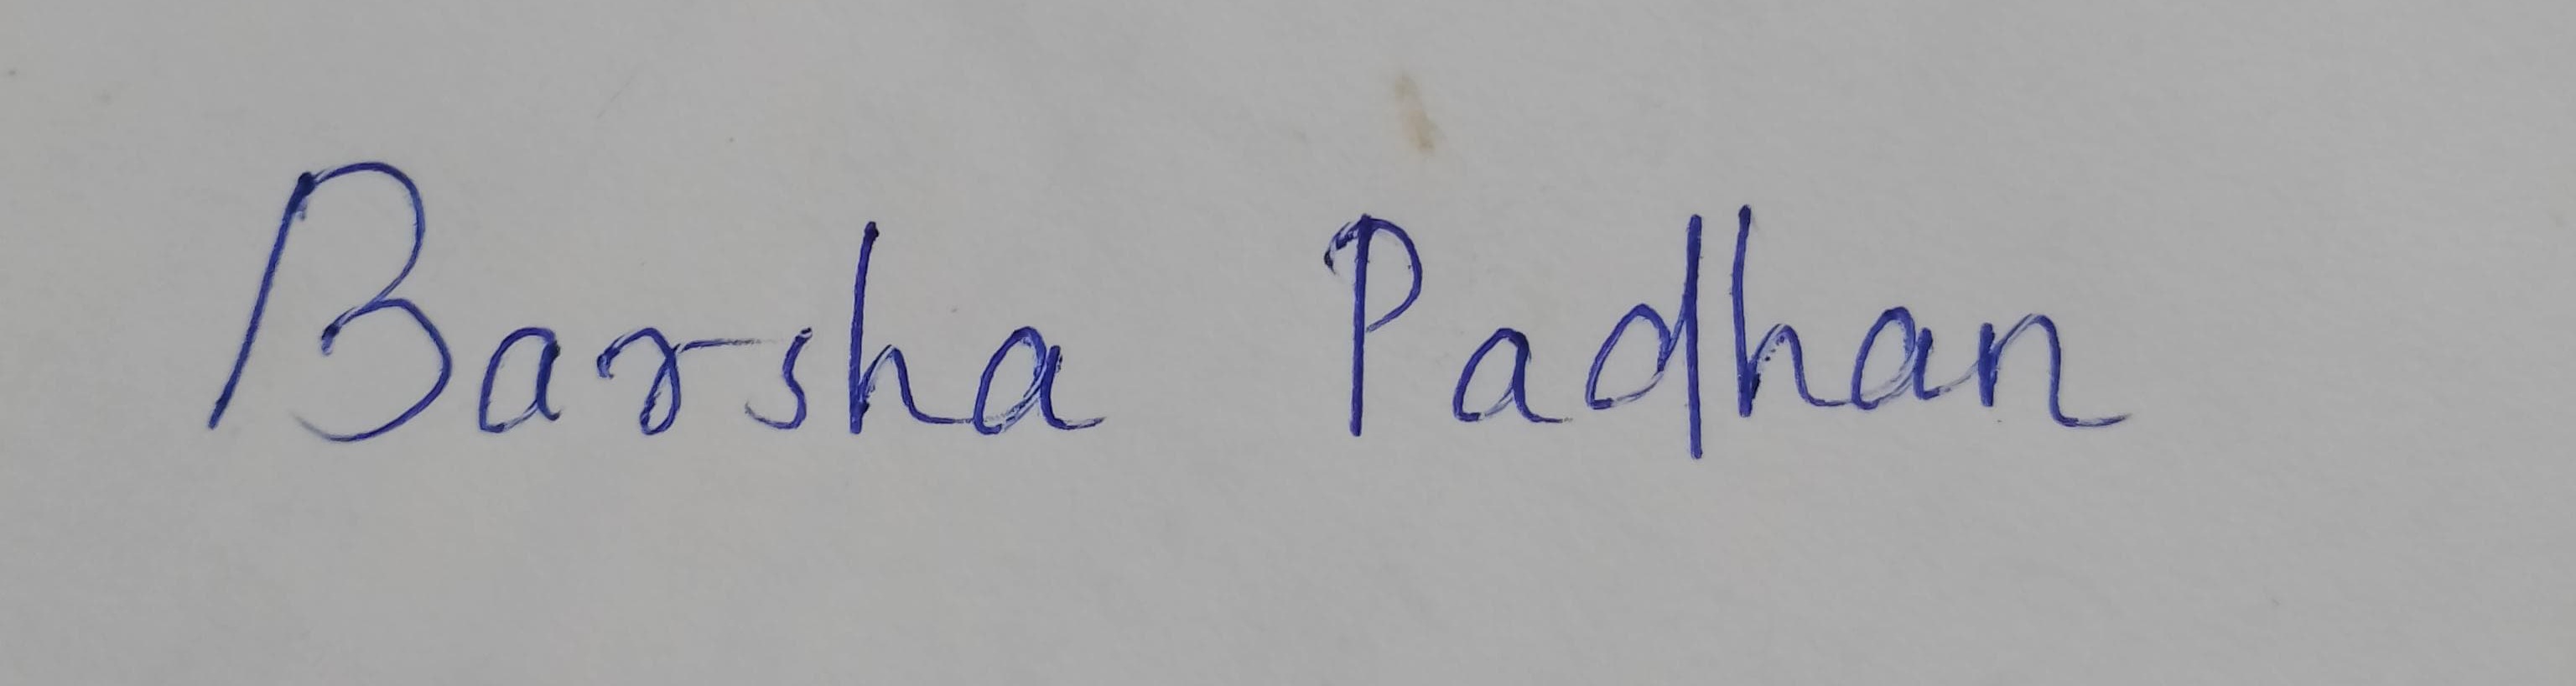 Barsha Padhan